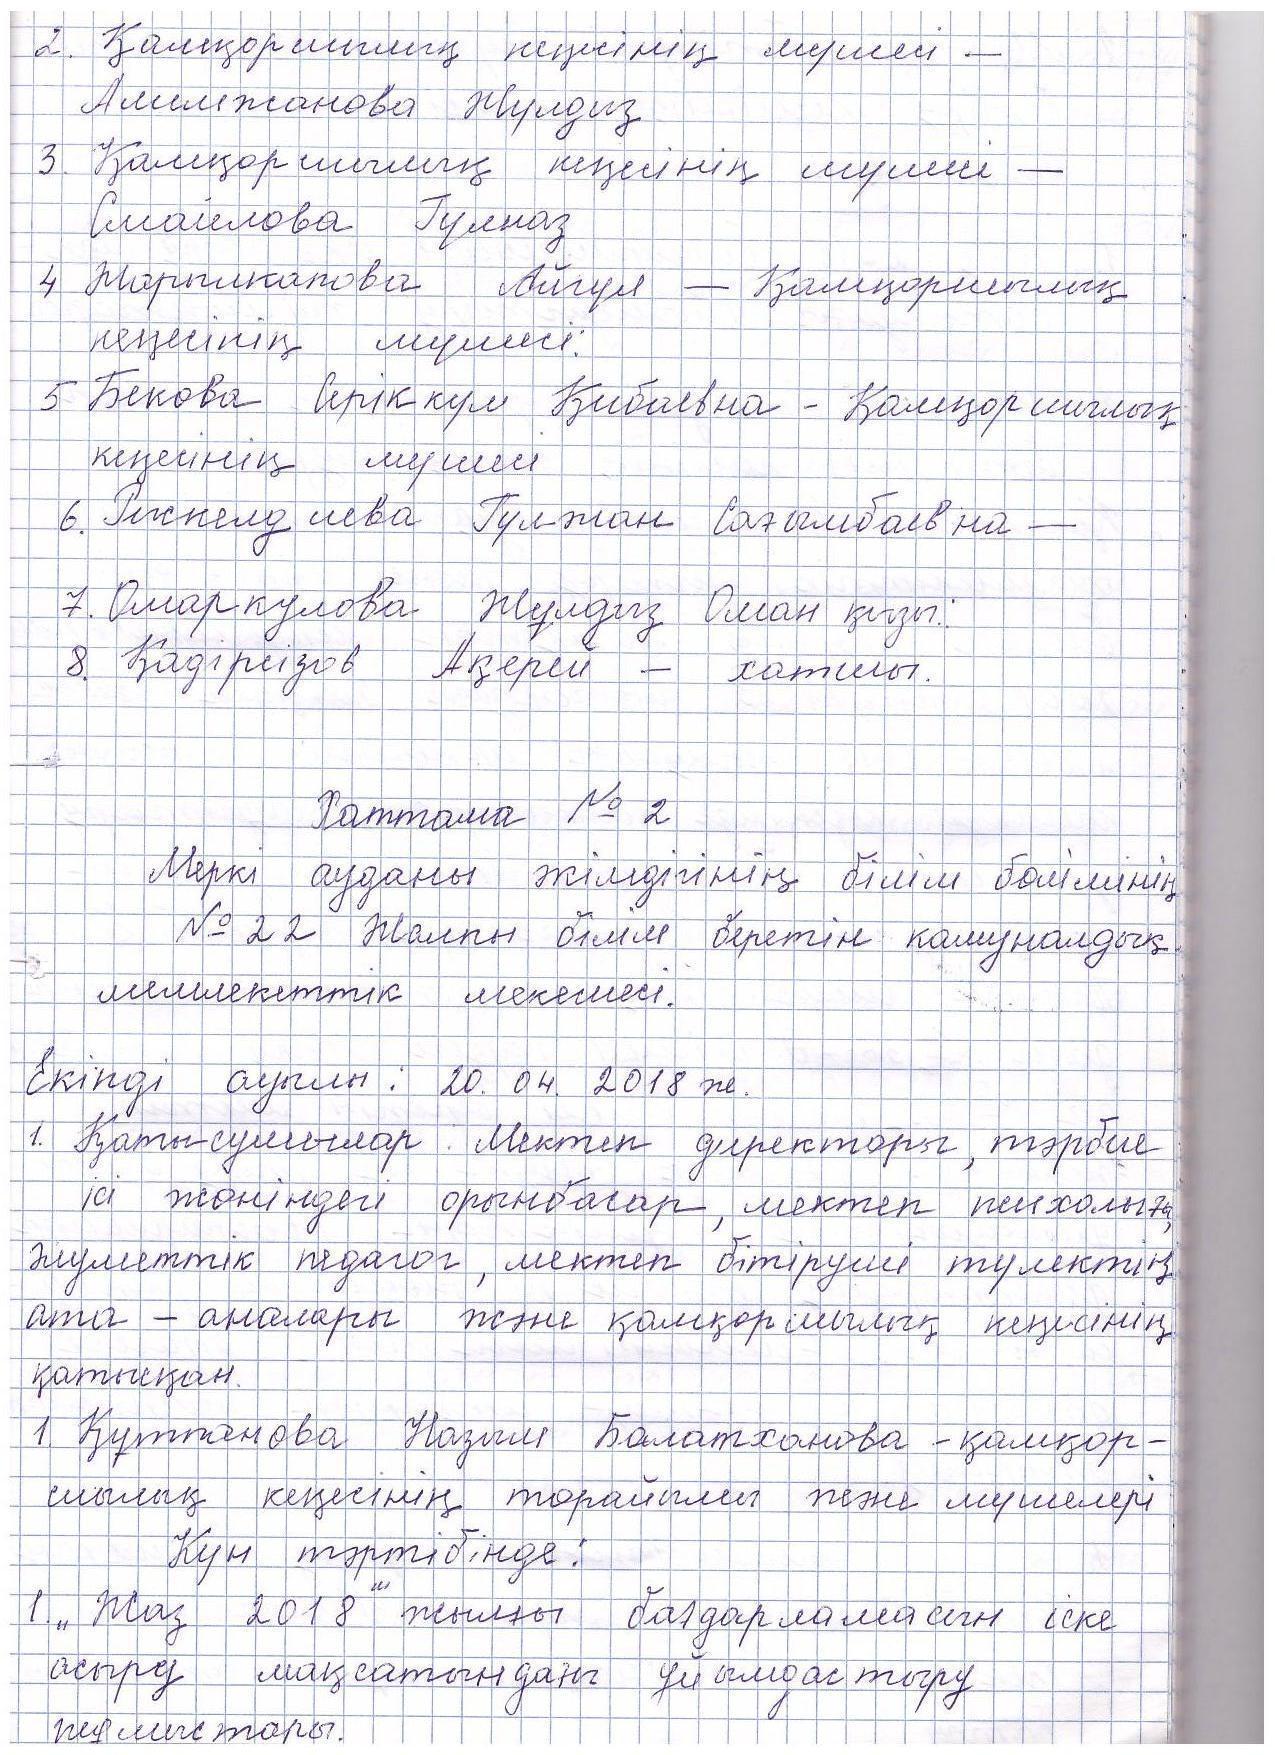 2. Қамқоршылық кеңесінің мүшесі –
Алимжанова Жулдыз
3. Қамқоршылық кеңесінің мүшесі –
Смайлова Гулназ
4 Жарылкапова Айгул – Қамқоршылық
кеңесінің мүшесі.
5 Бекова Серіккул Қибаевна - Қамқоршылық
кеңесінің мүшесі
6. Гулжан Сағымбаевна –
7. Омаркулова Жұлдыз Оман қызы.
8. Қадірсізов Ақерей – хатшы.
Хаттама № 2
Меркі ауданы әкімдігінің білім бөлімінің
№ 22 Жалпы білім беретін камуналдық
мемлекеттік мекемесі.
Екінді ауылы: 20. 04. 2018 ж.
1. Қатысушылар: Мектеп директоры, тәрбие
ісі жөніндегі орынбасар, мектеп психологы,
әлуметтік педагог, мектеп бітіруші тулектің
ата – аналары және қамқоршылық кеңесінің
қатысқан.
1. Құттанова Назым Балатханова - қамқор-
шылық кеңесінің төрайымы және мүшелері
Күн тәртібінде:
1. „ Жаз 2018" жылғы бағдарламасын іске
асыру мақсатындағы ұйымдастыру
жұмыстары.